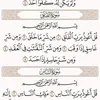 وَلَمْ يَكُن لَّهُ كُفُوًا أَحَدٌ
سُورَةُ الْفَلَقِ
بِسْمِ اللَّهِ الرَّحْمَٰنِ الرَّحِيمِ
قُلْ أَعُوذُ بِرَبِّ الْفَلَقِ مِن شَرِّ مَا خَلَقَ وَمِن شَرِّ
غَاسِقٍ إِذَا وَقَبَ وَمِن شَرِّ النَّفَّاثَاتِ فِي الْعُقَدِ
وَمِن شَرِّ حَاسِدٍ إِذَا حَسَدَ
سُورَةُ النَّاسِ
بِسْمِ اللَّهِ الرَّحْمَٰنِ الرَّحِيمِ
قُلْ أَعُوذُ بِرَبِّ النَّاسِ